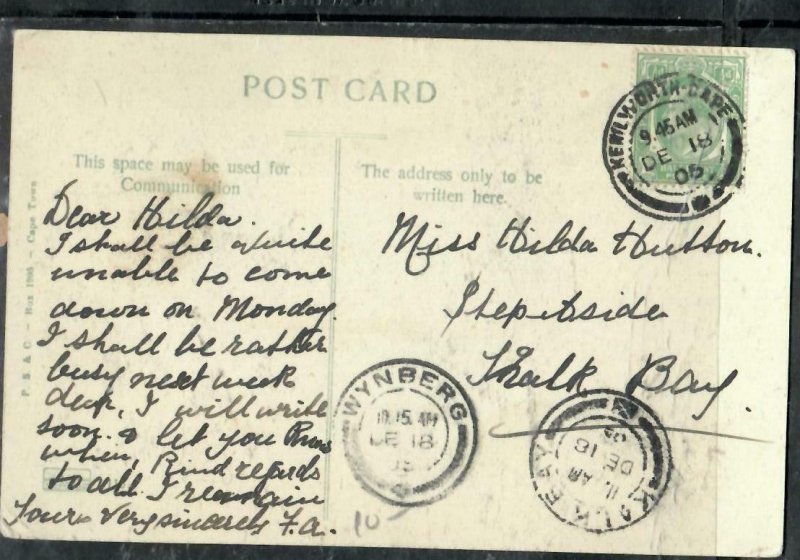 POST CARD
This space may be used for
Communication
The address only to be
written here.
Dear Hilda.
I shall be quite
unable to come
down on Monday.
I shall be rather
busy next week
dear, I will write
soon & let you know
when, Kind regards
to all. I remain
Yours Very sincerely F.A.
Miss Hilda Hutton.
Step Aside
Kalk Bay.
KENILWORTH-CAPE
9.45 AM
DE 18
05
WYNBERG
10.15. AM
DE 18
05
KALK BAY
11. AM
DE 18
05
P. S. & C. – Box 1005 – Cape Town
10